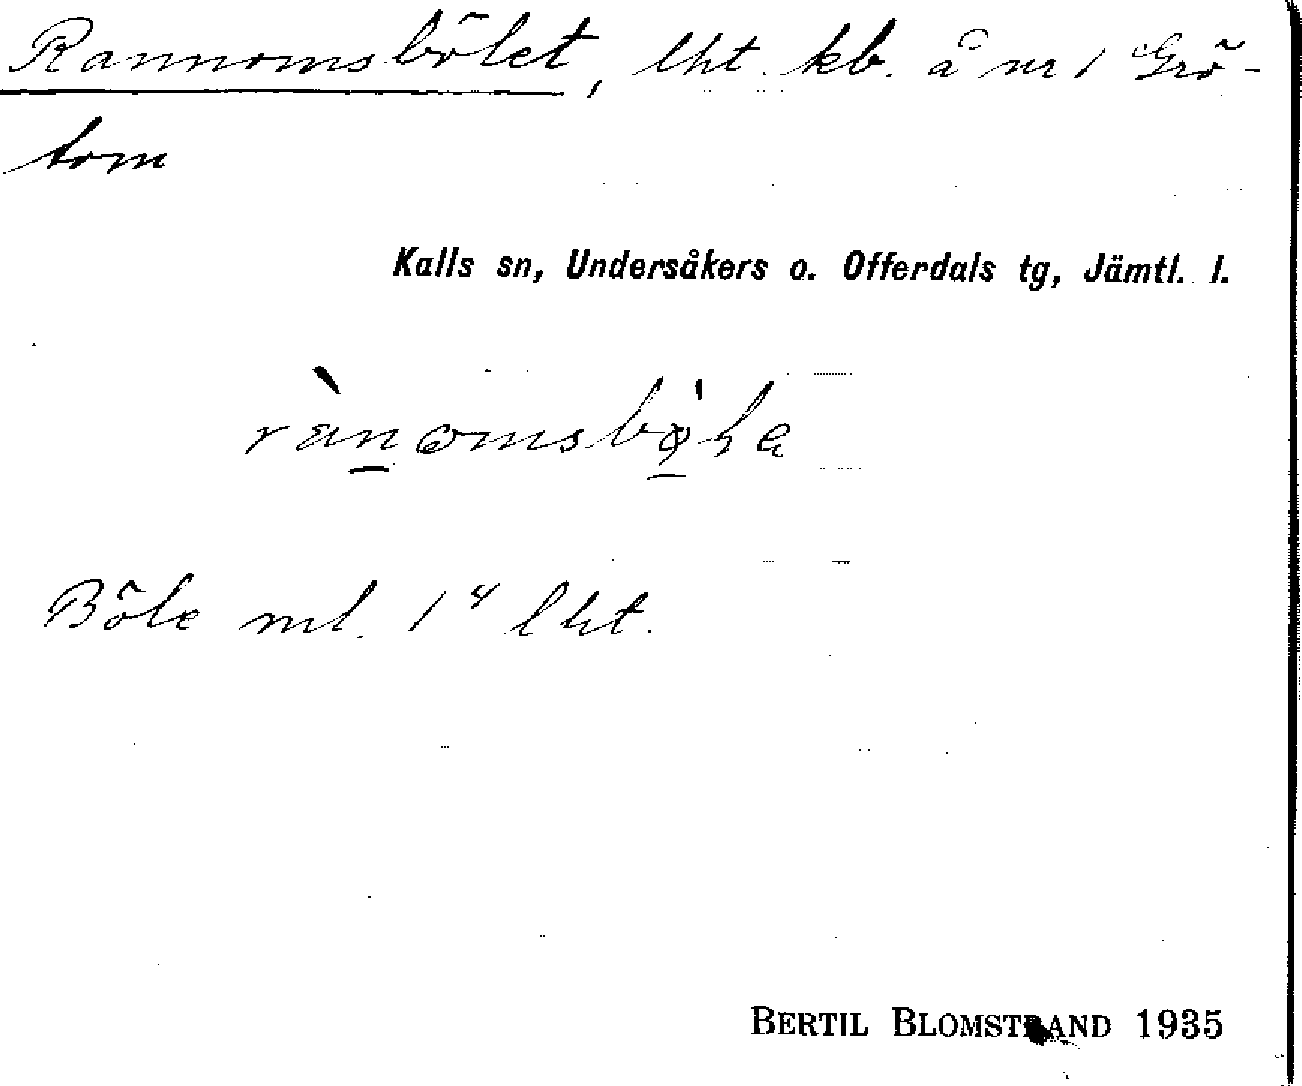 Rannomsbölet, lht. kb. å nr 1 Grö-
tom
Kalls sn, Undersåkers o. Offerdals tg, Jämtl. l.
Böle ml. 1 4 lht.
BERTIL BLOMSTRAND 1935